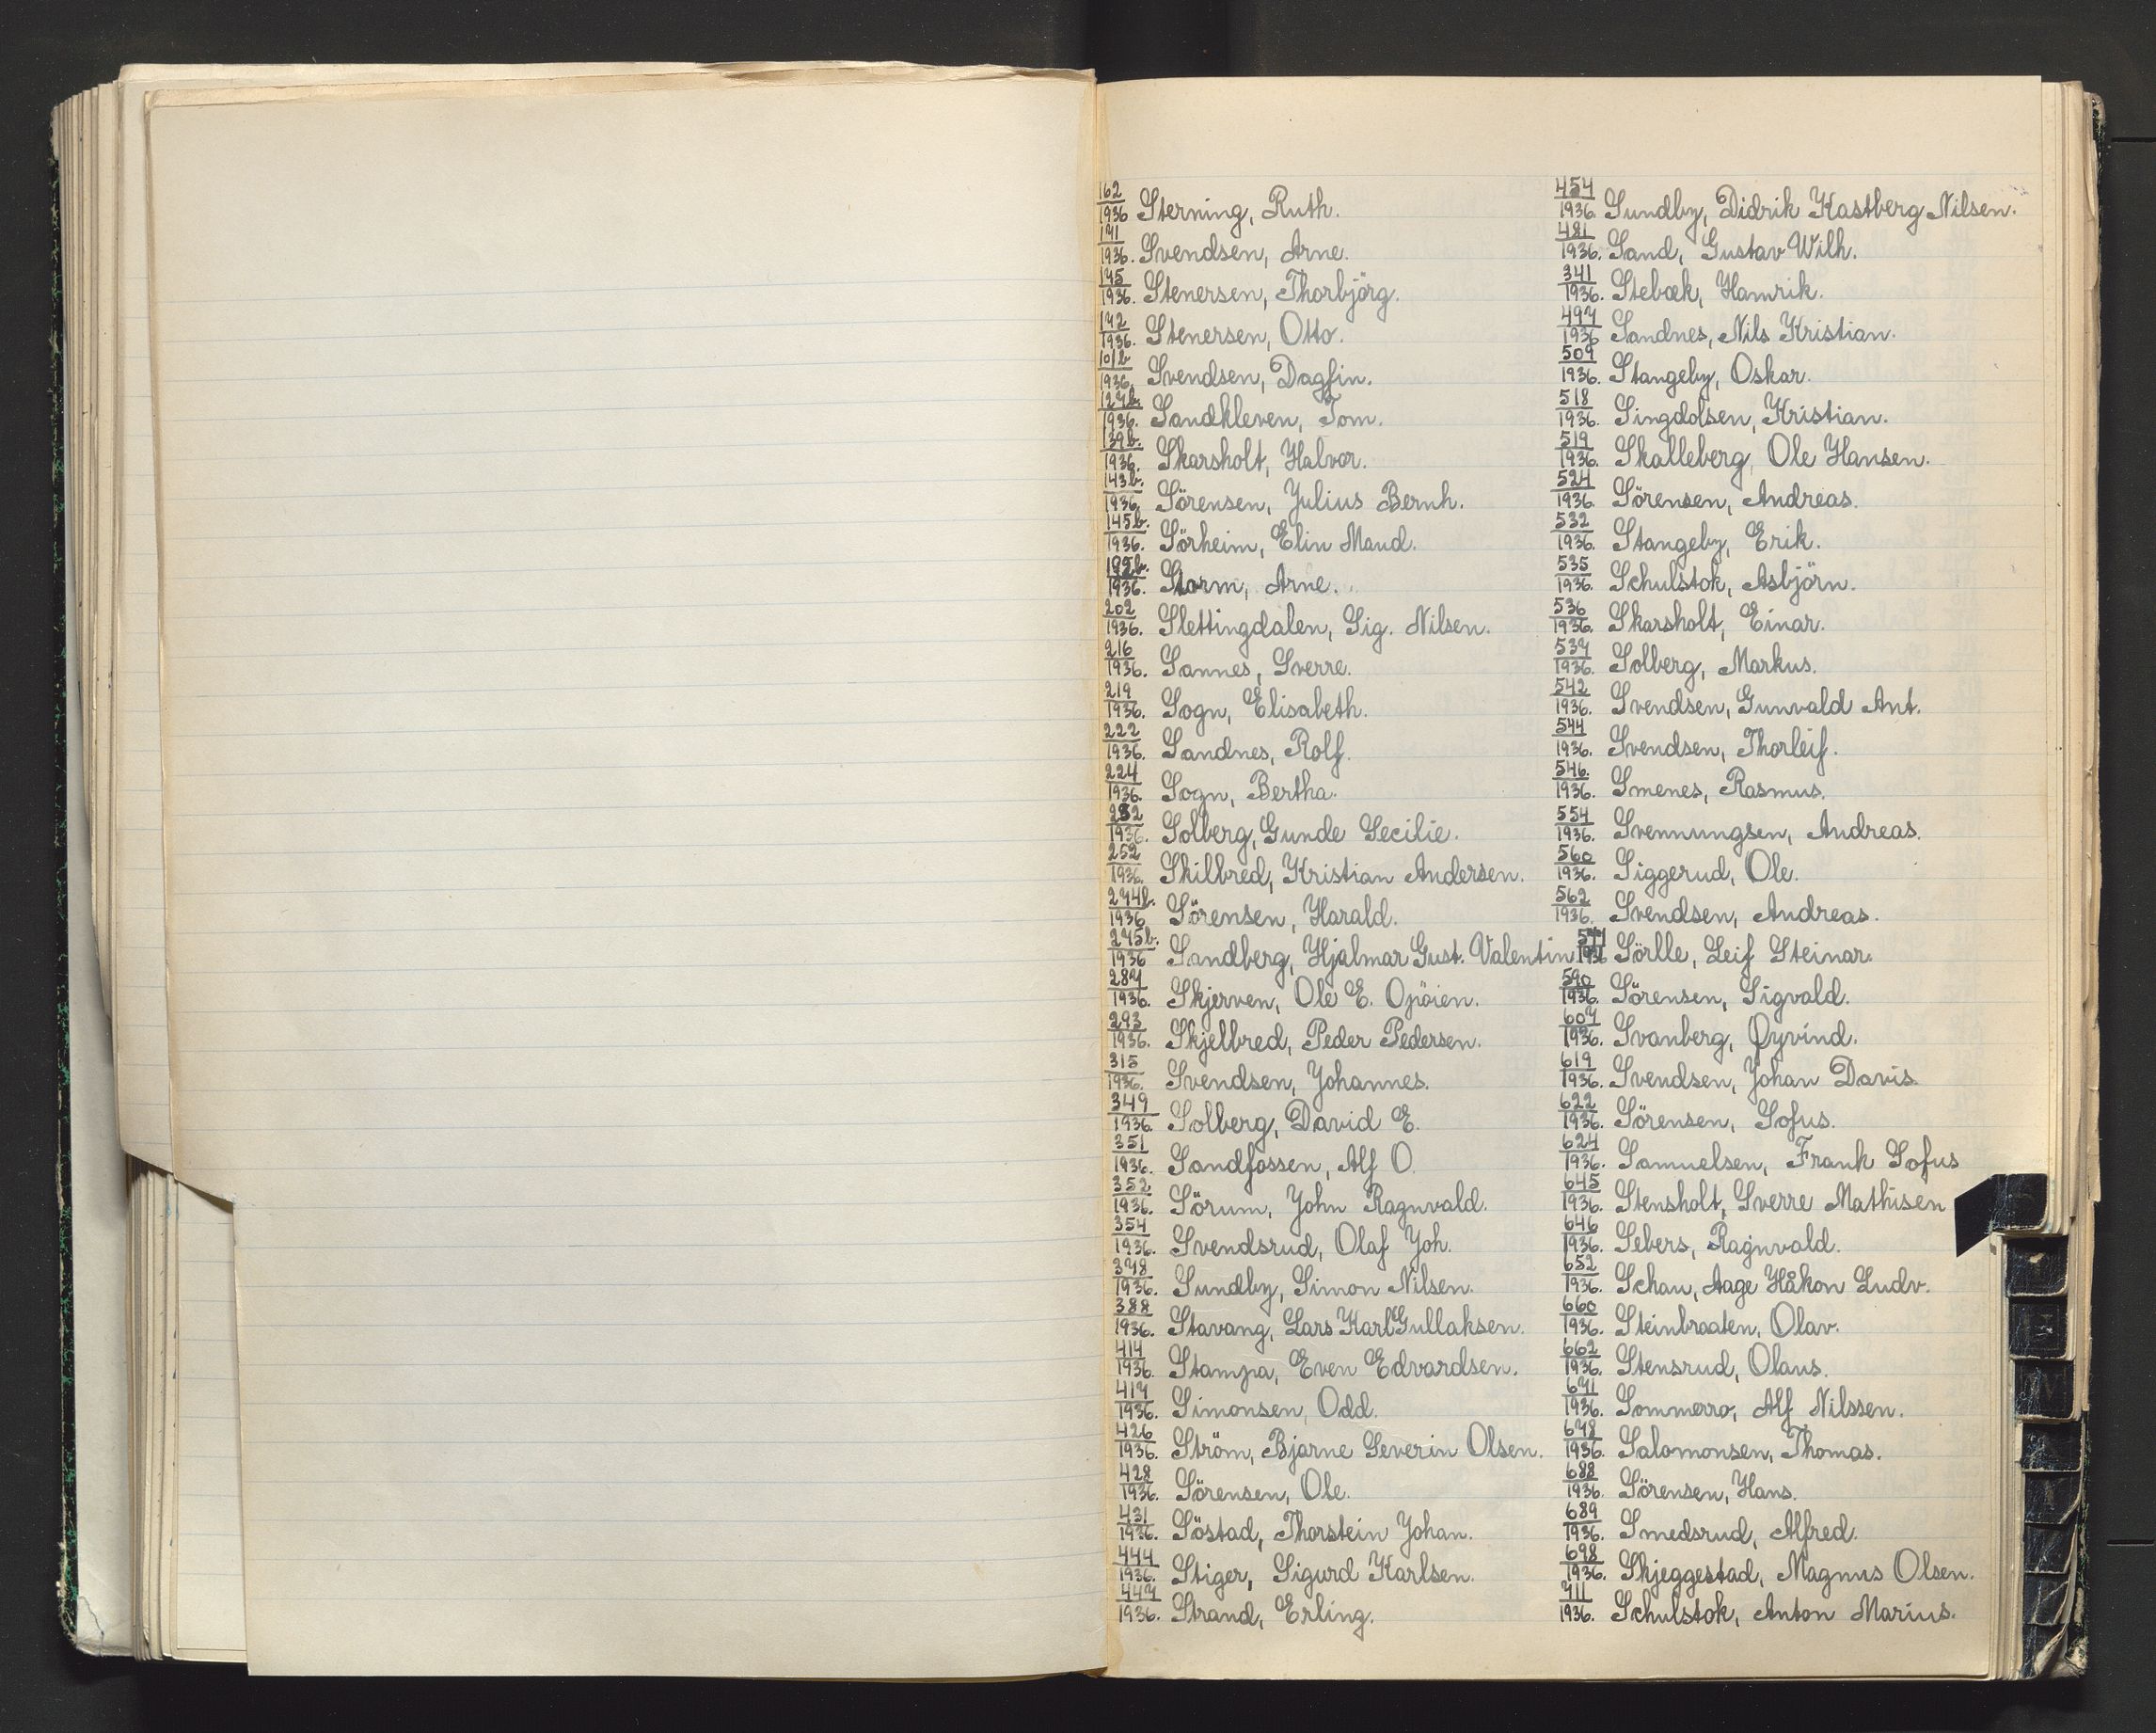 162/1936 Sterning, Ruth.
171/1936. Svendsen, Arne.
175/1936. Stenersen, Thorbjörg.
172/1936. Stenersen, Otto.
101b/1936. Svendsen, Dagfin.
127b./1936. Sandkleven, Tom.
139b./1936. Skarsholt, Halvor.
143b./1936. Sörensen, Julius Bernh.
145b./1936. Sörheim, Elin Maud.
192b./1936. Storm, Arne.
202/1936. Slettingdalen, Sig. Nilsen.
216/1936. Sannes, Sverre.
219/1936. Sogn, Elisabeth.
222/1936. Sandnes, Rolf.
224/1936. Sogn, Bertha.
232/1936. Solberg, Gunde Cecilie.
252/1936. Skilbred, Kristian Andersen.
274b./1936 Sörensen, Harald.
275b./1936 Sandberg, Hjalmar Gust. Valentin
287/1936. Skjerven, Ole E. Opöien.
293/1936. Skjelbred, Peder Pedersen.
315/1936. Svendsen, Johannes.
349/1936. Solberg, David E.
351/1936. Sandfossen, Alf O.
352/1936. Sörum, John Ragnvald.
354/1936. Svendsrud, Olaf Joh.
378/1936. Sundby, Simon Nilsen.
388/1936. Stavang, Lars Karl Gullaksen.
414/1936. Stampa, Even Edvardsen.
417/1936. Simonsen, Odd.
426/1936. Ström, Bjarne Severin Olsen.
428/1936. Sörensen, Ole.
431/1936. Söstad, Thorstein Johan.
444/1936. Stiger, Sigurd Karlsen.
447/1936. Strand, Erling.
454/1936. Sundby, Didrik Kastberg Nilsen.
481/1936. Sand, Gustav Wilh.
341/1936. Stebæk, Hamrik.
497/1936 Sandnes, Nils Kristian.
509/1936. Stangeby, Oskar.
518/1936. Singdolsen, Kristian.
519/1936. Skalleberg, Ole Hansen.
524/1936. Sörensen, Andreas.
532/1936. Stangeby, Erik.
535/1936. Schulstok, Asbjörn.
536/1936. Skarsholt, Einar.
537/1936. Solberg, Markus.
542/1936. Svendsen, Gunvald Ant.
544/1936. Svendsen, Thorleif.
546./1936. Smenes, Rasmus.
554/1936. Svennungsen, Andreas.
560/1936. Siggerud, Ole.
562/1936. Svendsen, Andreas.
571/1936 Sörlle, Leif Steinar.
590/1936. Sörensen, Sigvald.
607/1936. Svanberg, Øyvind.
619/1936. Svendsen, Johan Davis.
622/1936. Sörensen, Sofus.
624/1936. Samuelsen, Frank Sofus
645/1936. Stensholt, Sverre Mathisen
646/1936. Sebers, Ragnvald.
652/1936. Schau, Aage Håkon Ludv.
660/1936. Steinbraaten, Olav.
662/1936. Stensrud, Olaus.
671/1936. Sommerro, Alf Nilssen.
678/1936. Salomonsen, Thomas.
688/1936. Sörensen, Hans.
689/1936. Smedsrud, Alfred.
698/1936. Skjeggestad, Magnus Olsen.
711/1936. Schulstok, Anton Marius.